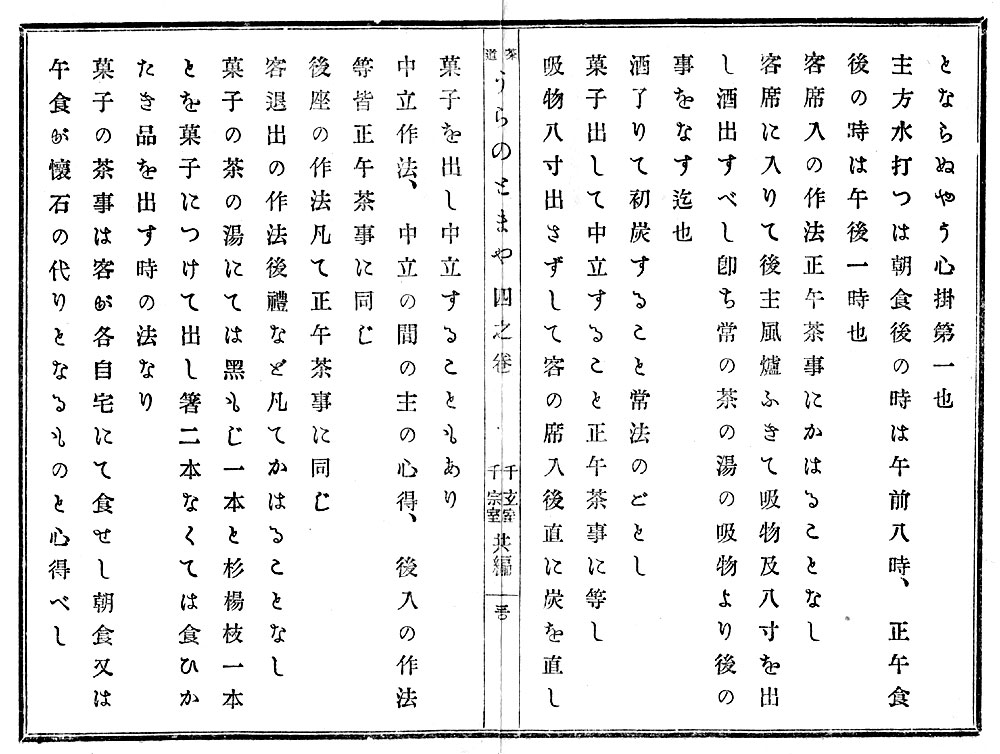 とならぬやう心掛第一也
主方水打つは朝食後の時は午前八時、正午食
後の時は午後一時也
客席入の作法正午茶事にかはることなし
客席に入りて後主風爐ふきて吸物及八寸を出
し酒出すべし卽ち常の茶の湯の吸物より後の
事をなす迄也
酒了りて初炭することと常法のごとし
菓子出して中立すること正午茶事に等し
吸物八寸出さずして客の席入後直に炭を直し
茶道うらのとまや四之卷
千玄室
千宗室
共編
菓子を出し中立することもあり
中立作法、中立の間の主の心得、後入の作法
等皆正午茶事に同じ
後座の作法凡て正午茶事に同じ
客退出の作法後禮など凡てかはることなし
菓子の茶の湯にては黑もじ一本と杉楊枝一本
とを菓子につけて出し箸二本なくては食ひか
たき品を出す時の法なり
菓子の茶事は客が各自宅にて食せし朝食又は
午食が懷石の代りとなるものと心得べし